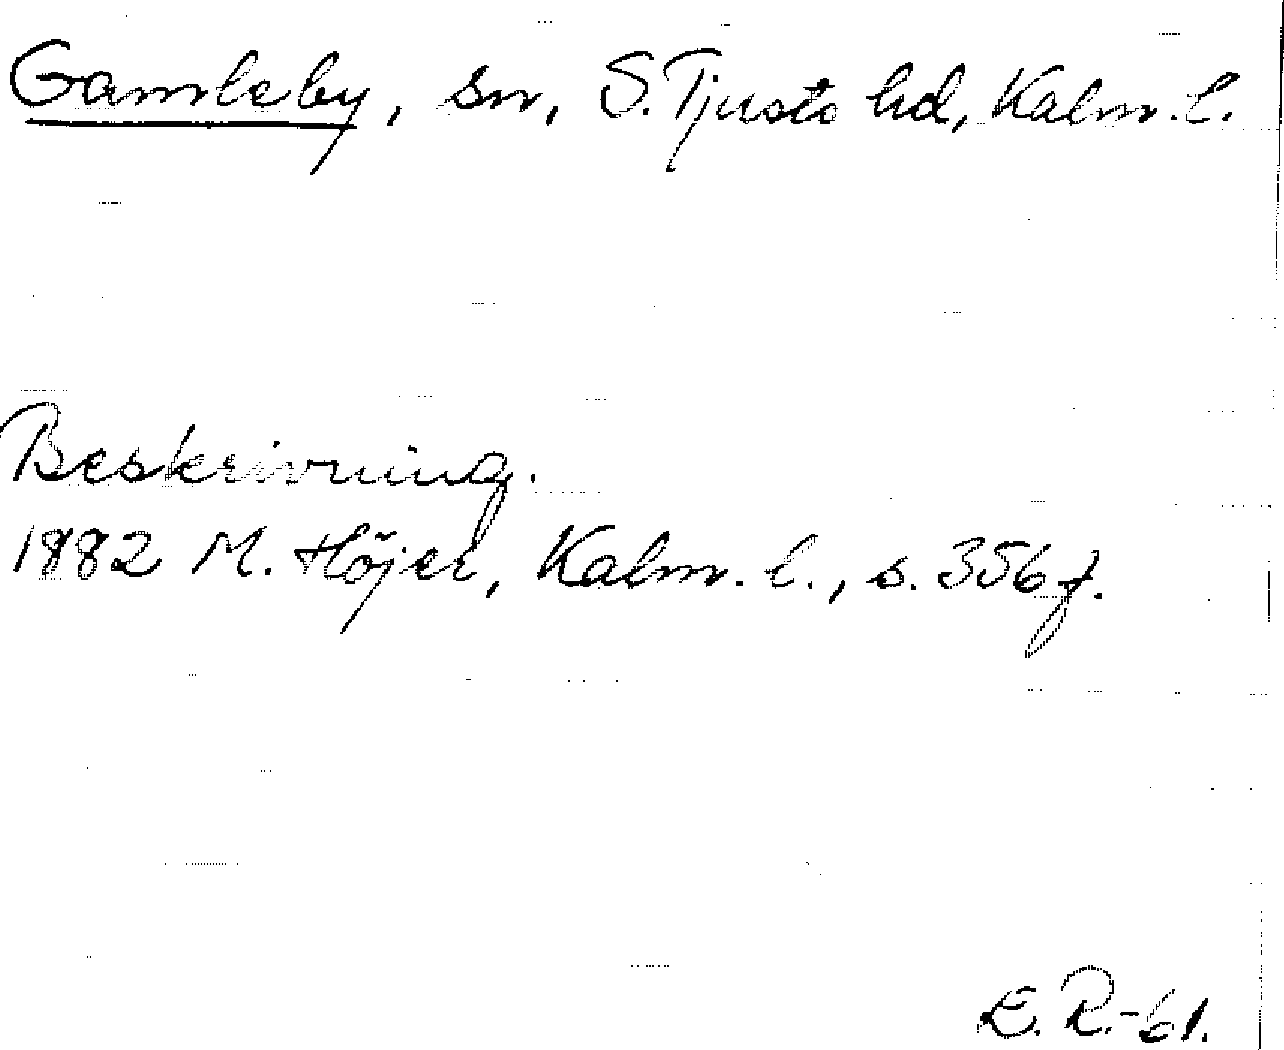 Gamleby, sn, S. Tjusts hd, Kalm. l.
Beskrivning.
1882 M. Höjer, Kalm. l., s. 356 f.
E. R.-61.